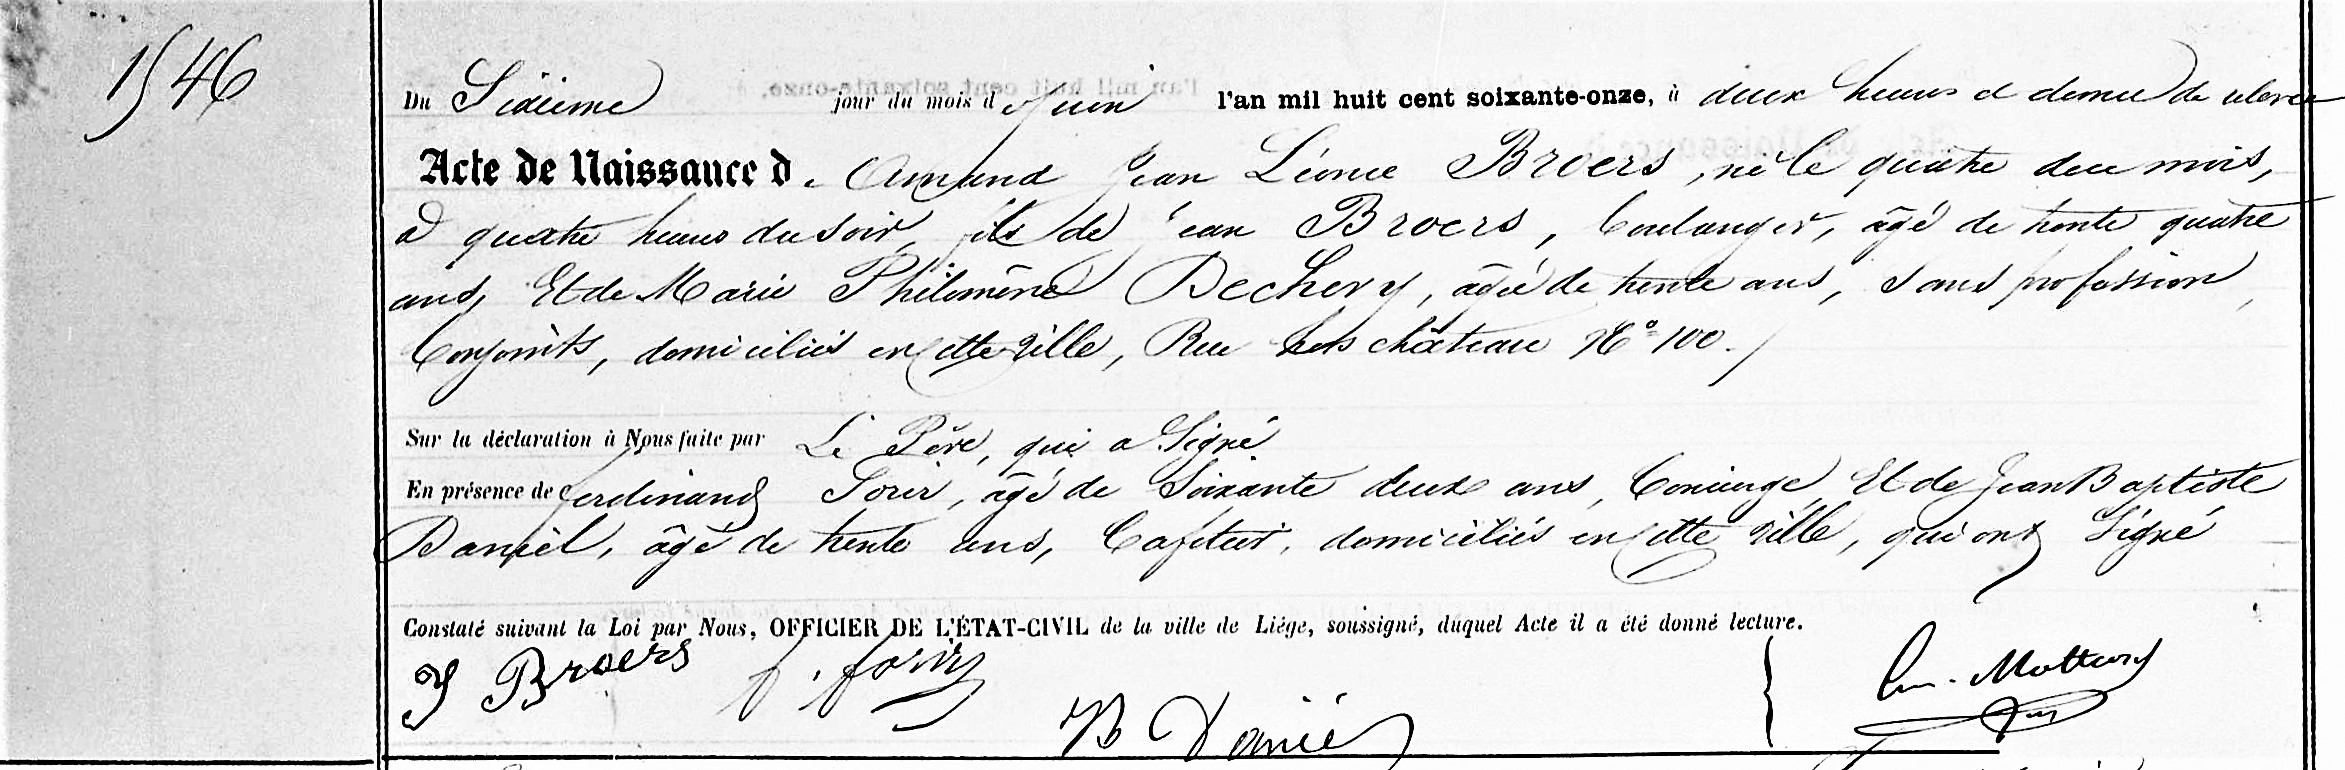 1546
Du Sixième jour du mois d Juin l'an mil huit cent soixante-onze, à deux heures et demie de relevée
Acte de Naissance d. Amand Jean Léonce Broers, né le quatre du mois,
à quatre heures du soir, fils de Jean Broers, boulanger, âgé de trente quatre
ans, Et de Marie Philomène Dechevy, âgée de trente ans, Sans profession,
Conjoints, domiciliés en cette ville, Rue hors château N° 100.
Sur la déclaration à Nous faite par Le Père, qui a Signé
En présence de ferdinand Forir, âgé de Soixante deux ans, Concierge, Et de Jean Baptiste
Daniel, âgé de trente ans, Cafetier, domiciliés en cette ville, qui ont Signé
Constaté suivant la Loi par Nous, OFFICIER DE L'ÉTAT-CIVIL de la ville de Liége, soussigné, duquel Acte il a été donné lecture.
J Broers f. forir
JB Daniel